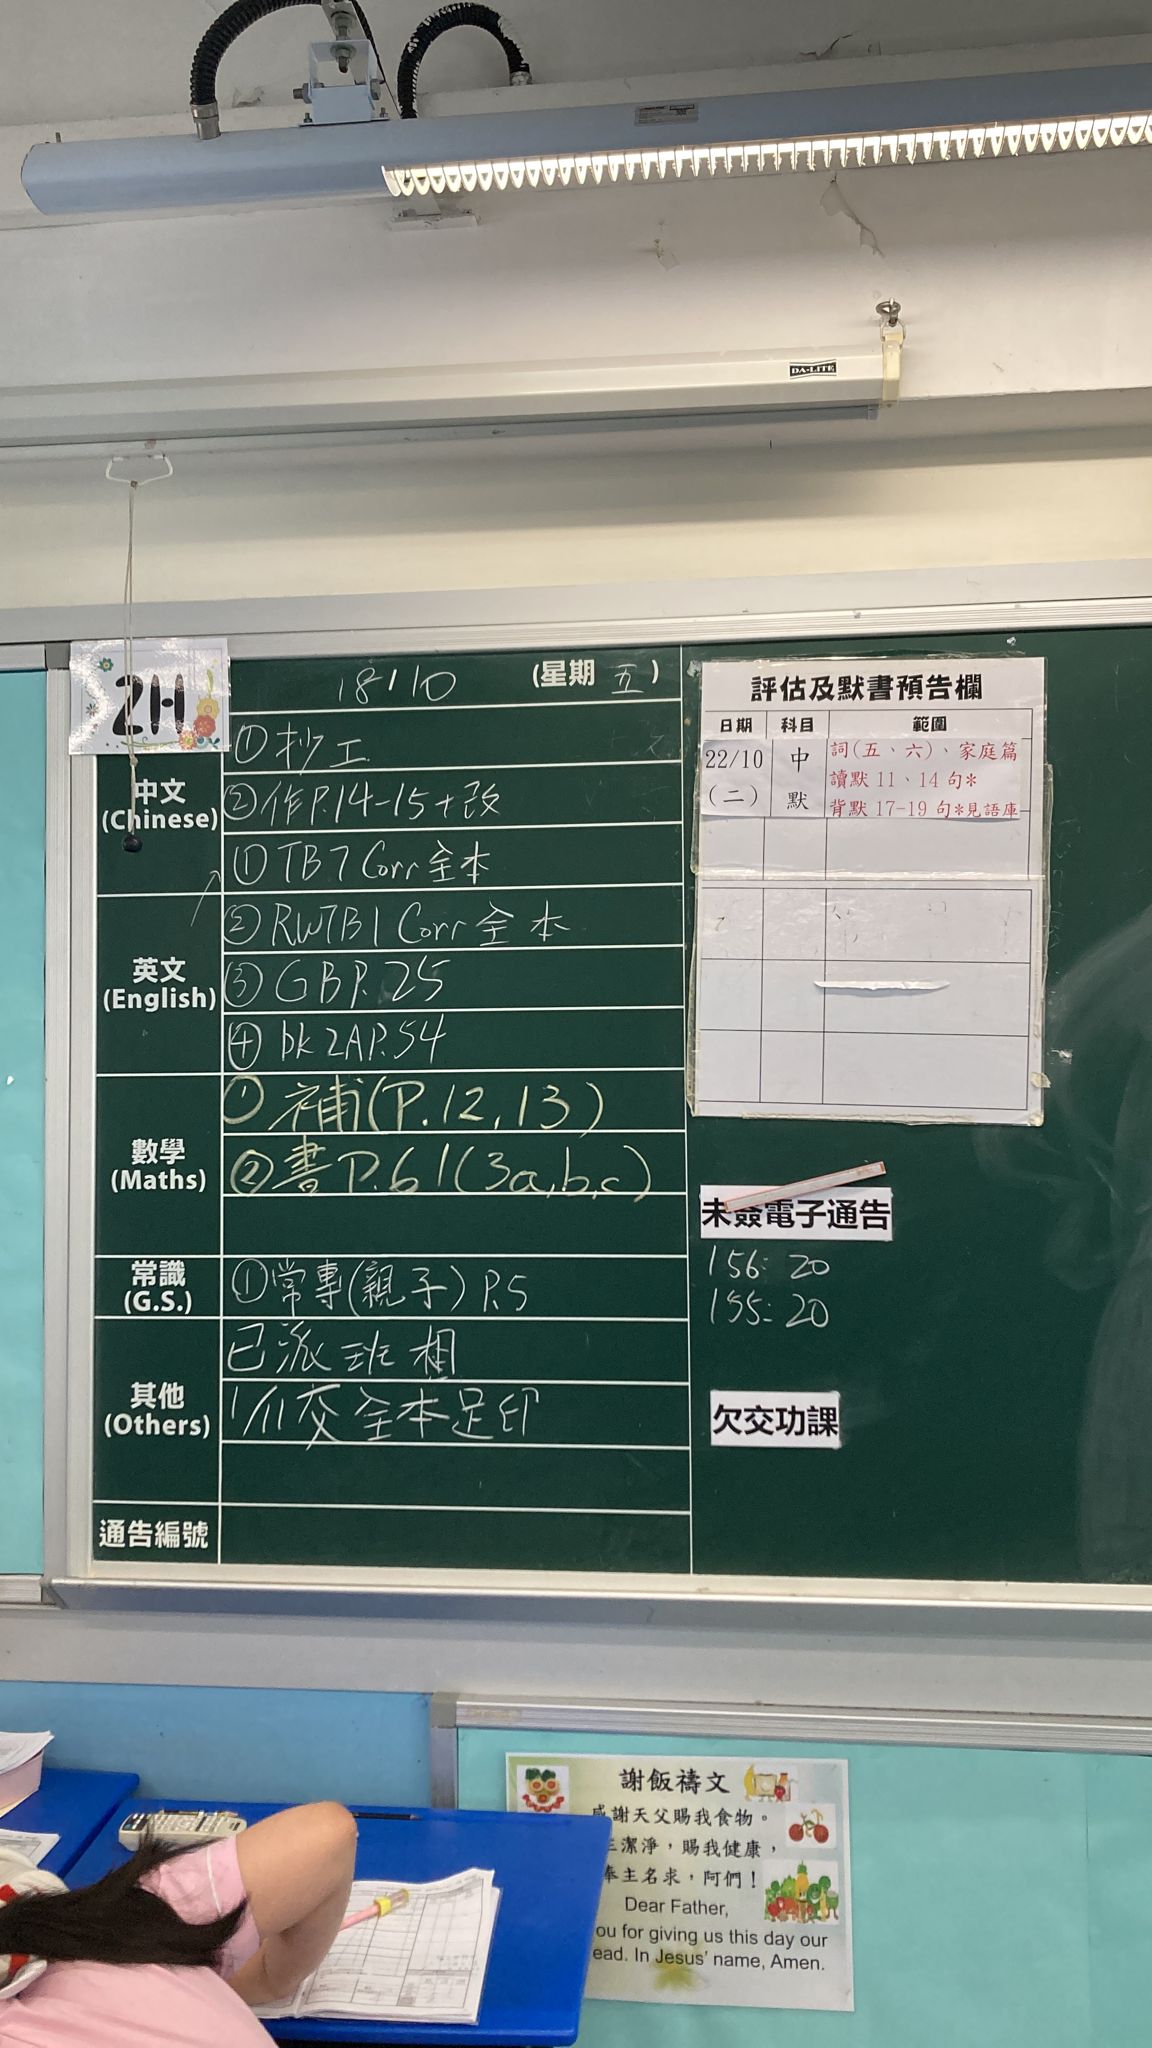 DA-LITE
2H
18/10 (星期五)
中文
(Chinese)
①抄工
②作P.14-15+改
英文
(English)
①TB7 Corr 全本
②RWTB1 Corr 全本
③GB P.25
④bk 2A P.54
數學
(Maths)
①補(P.12,13)
②書P.61(3a,b,c)
常識
(G.S.)
①常專(親子) P.5
其他
(Others)
已派班相
1/11交全本足印
通告編號
評估及默書預告欄
日期 科目 範圍
22/10 (二) 中默 詞(五、六)、家庭篇
讀默 11、14 句*
背默 17-19 句*見語庫
未簽電子通告
156: 20
155: 20
欠交功課
謝飯禱文
感謝天父賜我食物。
潔淨,賜我健康,
奉主名求,阿們!
Dear Father,
ou for giving us this day our
ead. In Jesus' name, Amen.